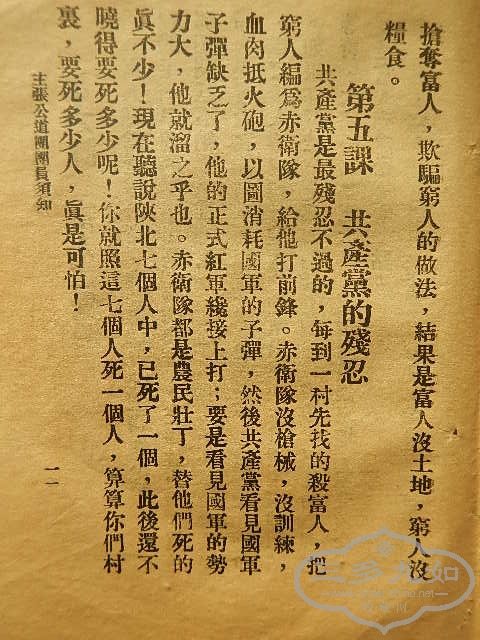 搶奪富人，欺騙窮人的做法，結果是富人沒土地，窮人沒
糧食。
第五課　共產黨的殘忍
共產黨是最殘忍不過的，每到一村先找的殺富人，把
窮人編爲赤衛隊，給他打前鋒。赤衛隊沒槍械，沒訓練，
血肉抵火砲，以圖消耗國軍的子彈，然後共產黨看見國軍
子彈缺乏了，他的正式紅軍纔接上打；要是看見國軍的勢
力大，他就溜之乎也。赤衛隊都是農民壯丁，替他們死的
眞不少！現在聽說陝北七個人中，已死了一個，此後還不
曉得要死多少呢！你就照這七個人死一個人，算算你們村
裏，要死多少人，眞是可怕！
主張公道團團員須知
一一